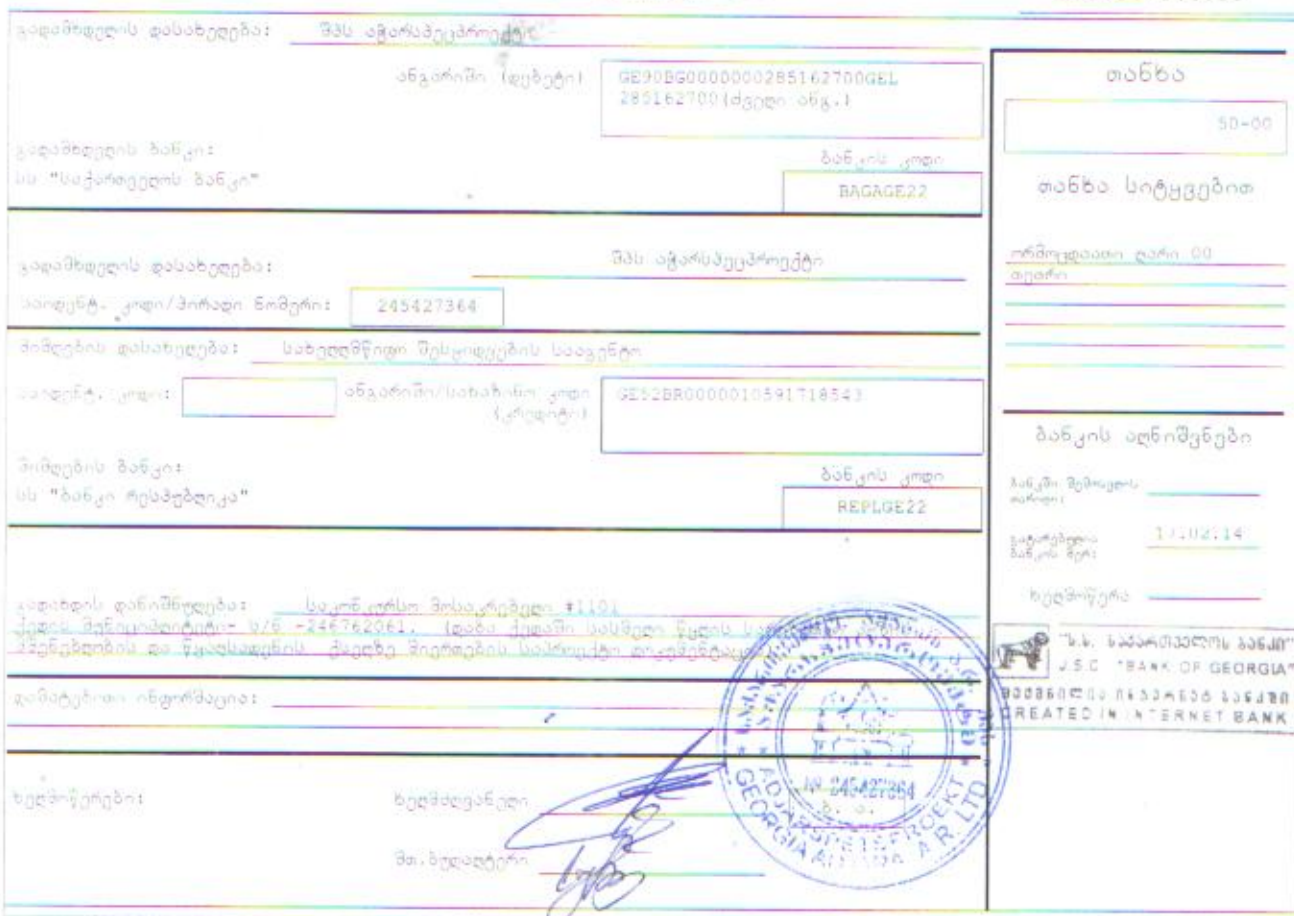 გადამხდელის დასახელება: შპს აჭარსპეცპროექტი
ანგარიში (დებეტი) GE90BG0000000285162700GEL
285162700(ძველი ანგ.)
გადამხდელის ბანკი:
სს "საქართველოს ბანკი"
ბანკის კოდი
BAGAGE22
გადამხდელის დასახელება: შპს აჭარსპეცპროექტი
საიდენტ. კოდი/პირადი ნომერი: 245427364
მიმღების დასახელება: სახელმწიფო შესყიდვების სააგენტო
საიდენტ. კოდი: ანგარიში/სახაზინო კოდი (კრედიტი) GE52BR0000010591718543
მიმღების ბანკი:
სს "ბანკი რესპუბლიკა"
ბანკის კოდი
REPLGE22
გადახდის დანიშნულება: საკონკურსო მოსაკრებელი #1101
ქედის მუნიციპალიტეტი- ს/ნ -246762061. (დაბა ქედაში სასმელი წყლის
მშენებლობის და წყალსადენის ქსელზე მიერთების საპროექტო
დამატებითი ინფორმაცია:
ხელმოწერები: ხელმძღვანელი
მთ.ბუღალტერი
თანხა
50-00
თანხა სიტყვებით
ორმოცდაათი ლარი 00
თეთრი
ბანკის აღნიშვნები
ბანკში შემოსვლის
თარიღი:
გატარებულია
ბანკის მერ:
ხელმოწერა
"ს.ს. საქართველოს ბანკი"
J.S.C "BANK OF GEORGIA"
შექმნილია ინტერნეტ ბანკში
CREATED IN INTERNET BANK
№ 245427364
ADJARSPETSPROEKT
GEORGIA A.R. LTD